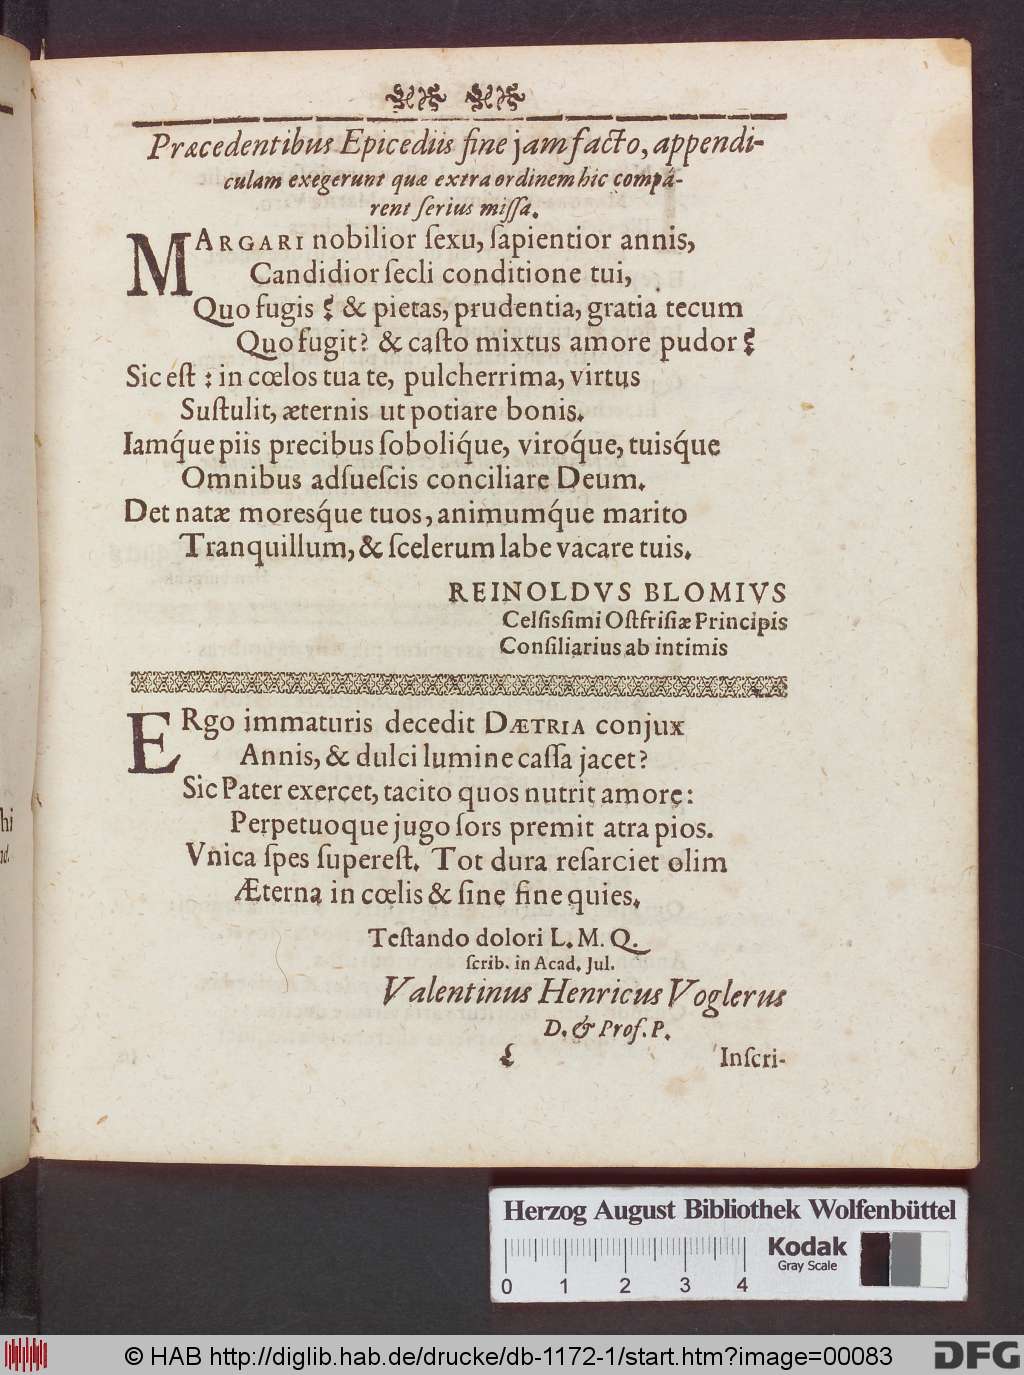 Præcedentibus Epicediis fine jam facto, appendi-
culam exegerunt quæ extra ordinem hic compá-
rent serius missa.
MARGARI nobilior sexu, sapientior annis,
Candidior secli conditione tui,
Quo fugis? & pietas, prudentia, gratia tecum
Quo fugit? & casto mixtus amore pudor?
Sic est: in cœlos tua te, pulcherrima, virtus
Sustulit, æternis ut potiare bonis.
Iamq́ue piis precibus soboliq́ue, viroq́ue, tuisq́ue
Omnibus adsuescis conciliare Deum.
Det natæ moresq́ue tuos, animumq́ue marito
Tranquillum, & scelerum labe vacare tuis.
REINOLDVS BLOMIVS
Celsissimi Ostfrisiæ Principis
Consiliarius ab intimis
ERgo immaturis decedit DÆTRIA conjux
Annis, & dulci lumine cassa jacet?
Sic Pater exercet, tacito quos nutrit amore:
Perpetuoque jugo sors premit atra pios.
Vnica spes superest. Tot dura resarciet olim
Æterna in cœlis & sine fine quies.
Testando dolori L. M. Q.
scrib. in Acad. Jul.
Valentinus Henricus Voglerus
D. & Prof. P.
Inscri-
hi
Herzog August Bibliothek Wolfenbüttel
0 1 2 3 4
Kodak
Gray Scale
© HAB http://diglib.hab.de/drucke/db-1172-1/start.htm?image=00083
DFG